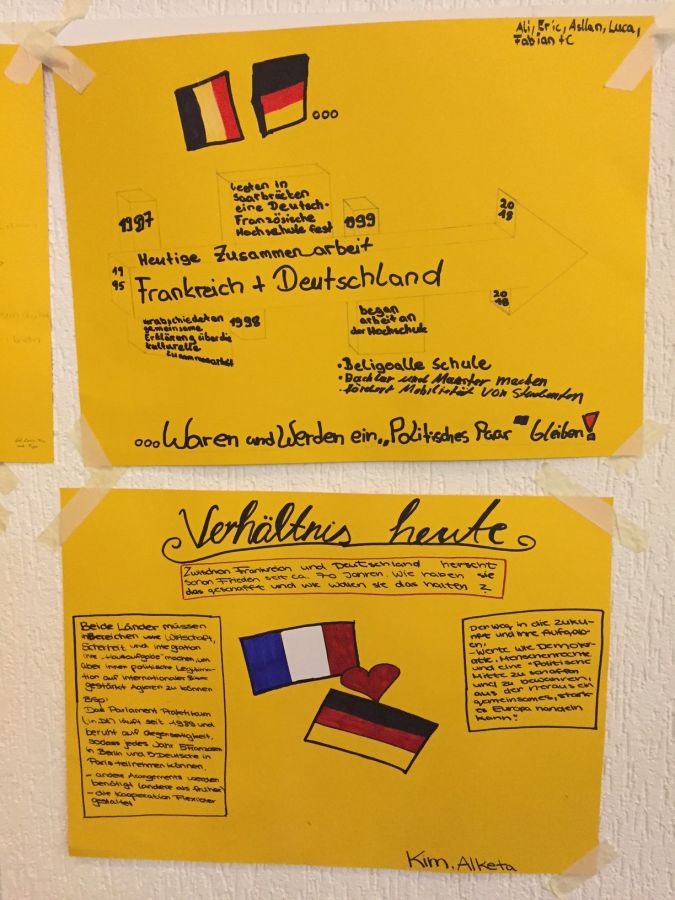 Ali, Eric, Asllan, Luca,
Fabian + C
...
1997
legten in
Saarbrücken
eine Deutsch-
Französische
Hochschule fest
1999
20
18
Heutige Zusammenarbeit
19
95
Frankreich + Deutschland
20
18
verabschiedeten
gemeinsame
Erklärung über die
kulturelle
Zusammenarbeit
1998
began
arbeit an
der Hochschule
• Beligoalle Schule
• Bachlor und Maester machen
• fördert Mobilität von Studenten
...Waren und Werden ein „Politisches Paar" bleiben!
Verhältnis heute
Zwischen Frankreich und Deutschland herscht
schon Frieden seit ca. 70 Jahren. Wie haben sie
das geschafft und wie wollen sie das halten?
Beide Länder müssen
in Bereichen wie Wirtschaft,
Sicherheit und Integration
ihre „Hausaufgabe" machen, um
über ihrer politische Legitima-
tion auf internationaler
gestärkt Agieren zu können
Bsp:
Das Parlament Praktikum
(in DE) läuft seit 1989 und
beruht auf Gegenseitigkeit,
sodass jedes Jahr 5 Franzosen
in Berlin und 5 Deutsche in
Paris teilnehmen können.
- andere Arangements werden
benötigt (andere als früher)
- die Kooperation Flexibler
gestaltet
Der Weg in die Zuku-
nft und ihre Aufgab-
en.
- Werte wie Demokr-
atie, Menschenrechte
und eine "Politische
Mitte zu schaffen
und zu bewahren,
aus der heraus ein
gemeinsames, stark-
es Europa handeln
kann."
Kim, Alketa